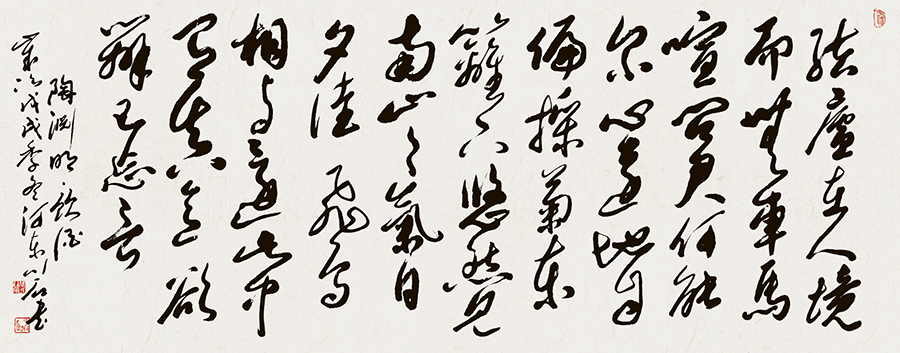 結廬在人境
而無車馬
喧问君何能
尔心遠地自
偏採菊東
籬下悠然見
南山々氣日
夕佳飛鳥
相与還此中
有真意欲
辨已忘言
陶渊明飲酒
歲次戊戌季冬河東